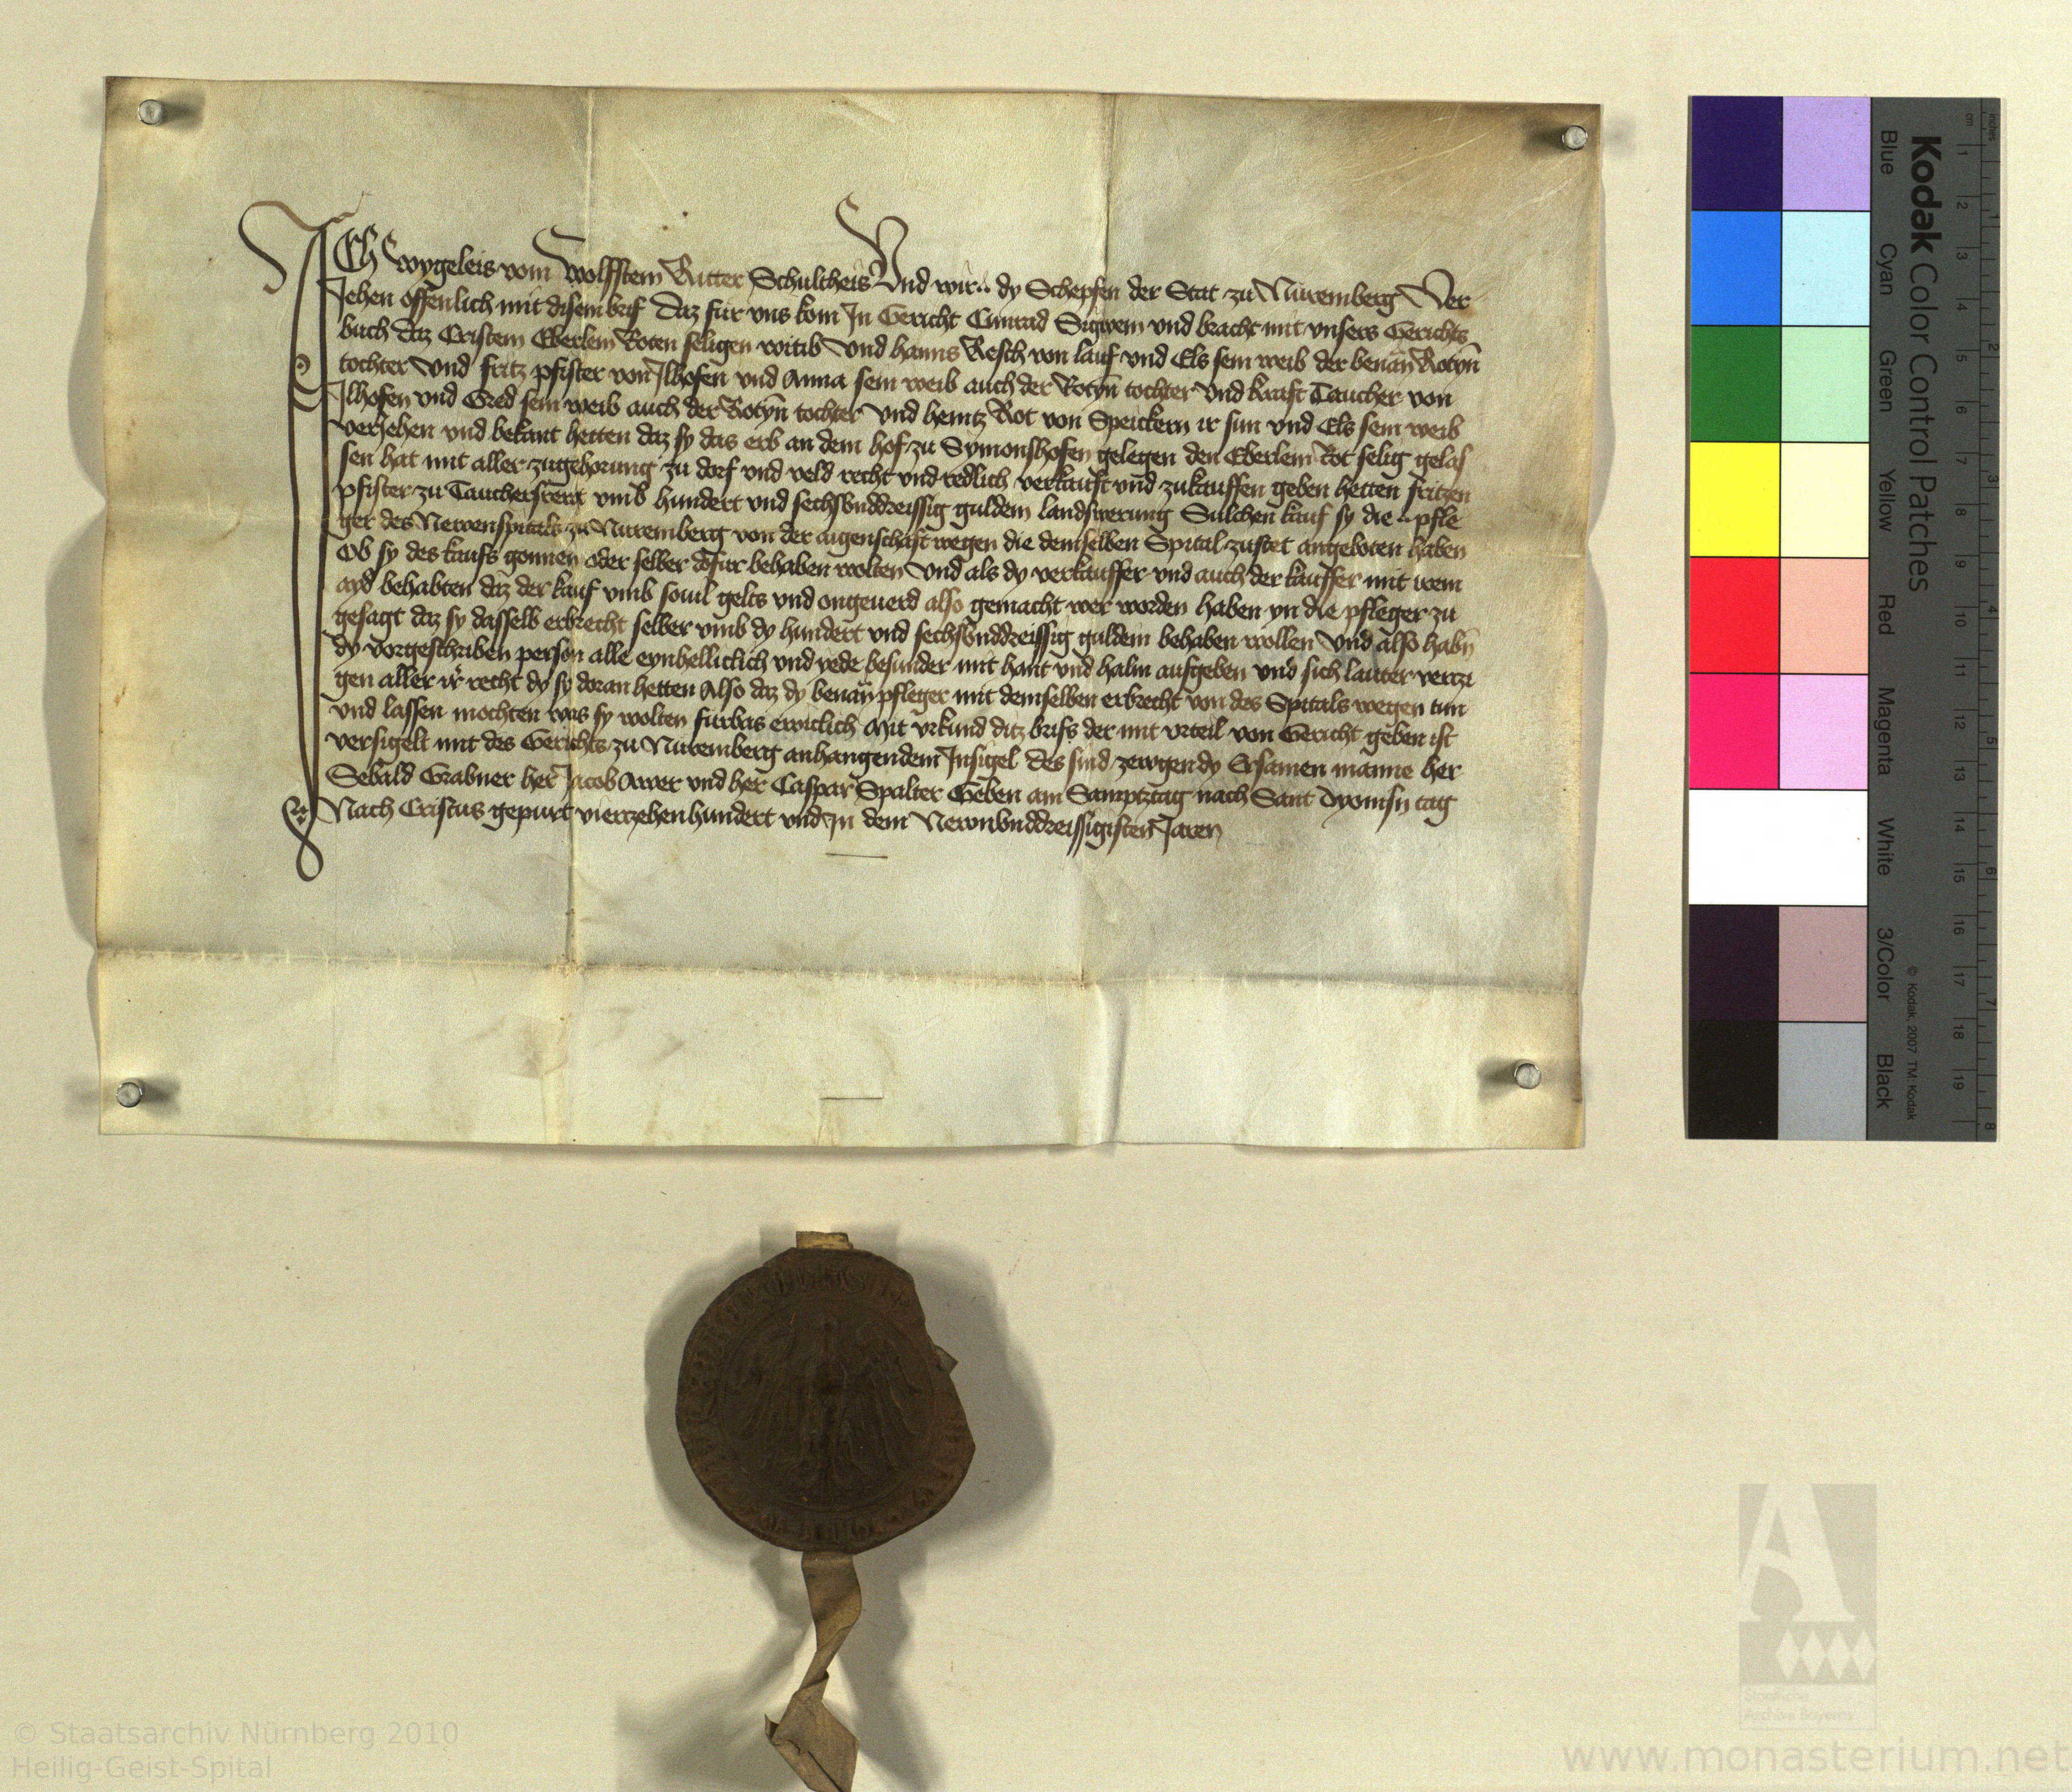 ICh Wygeleis vom Wolfstein Ritter Schultheis Und wir dy Schepfen der Stat zu Nuremberg Ver
Jehen offenlich mit disem brif Daz fur vns kom In Gericht Cunrad Sigwein und bracht mit vnsers Gerichts
buch daz Cristein Eberlein Roten seligen witib Und hanns Resch von lauf und Els sein weib der benan Rotyn
tochter Und fritz pfister von Jlhofen vnd Anna sein weib auch der Rotyn tochter Und kraft Taucher von
Jlhofen vnd Gred sein weib auch der Rotyn tochter Und heintz Rot von Speickern ir sun vnd Els sein weib
verJehen vnd bekant hetten daz sy das erb an dem hof zu Symonshofen gelegen den Eberlein Rot selig gelas
sen hat mit aller zugehorung zu dorf vnd veld recht vnd redlich verkauft vnd zukauffen geben hetten fritzen
pfister zu vmb hundert vnd sechsvnddreissig guldein landswerung Sulchen kauf sy die pfle
ger des Newenspitals zu Nuremberg von der aigenschaft wegen die demselben Spital zustet angeboten haben
Ob sy des kaufs gonnen oder selber dofur behaben wolten Und als dy verkauffer vnd auch der kauffer mit irem
ayd behabten daz der kauf vmb souil gelts vnd ongeuerd also gemacht wer worden haben yn die pfleger zu
gesagt daz sy dasselb erbrecht selber vmb dy hundert vnd sechsvnddreissig guldein behaben wollen Und also habn
dy vorgeschriben person alle eynhelliclich vnd yede besunder mit hant vnd halm aufgeben vnd sich lauter verzi
gen aller ir recht dy sy doran hetten Also daz dy benan pfleger mit demselben erbrecht von des Spitals wegen tun
vnd lassen mochten was sy wolten furbas ewiclich Mit vrkund ditz brifs der mit vrteil von Gericht geben ist
versigelt mit des Gerichts zu Nuremberg anhangendem Jnsigel Des sind zewgen dy Ersamen manne her
Sebald Grabner her Jacob Awer vnd her Caspar Spalter Geben am Samptztag nach Sant Dyonisy tag
Nach Cristus gepurt viertzehenhundert vnd in dem Newnvnddreissigisten Jaren
Kodak Color Control Patches
Blue Cyan Green Yellow Red Magenta White 3/Color Black
© Kodak, 2007 TM: Kodak
cm 1 2 3 4 5 6 7 8 9 10 11 12 13 14 15 16 17 18 19
inches 1 2 3 4 5 6 7 8
© Staatsarchiv Nürnberg 2010
Heilig-Geist-Spital
Staatliche
Archive Bayerns
www.monasterium.net